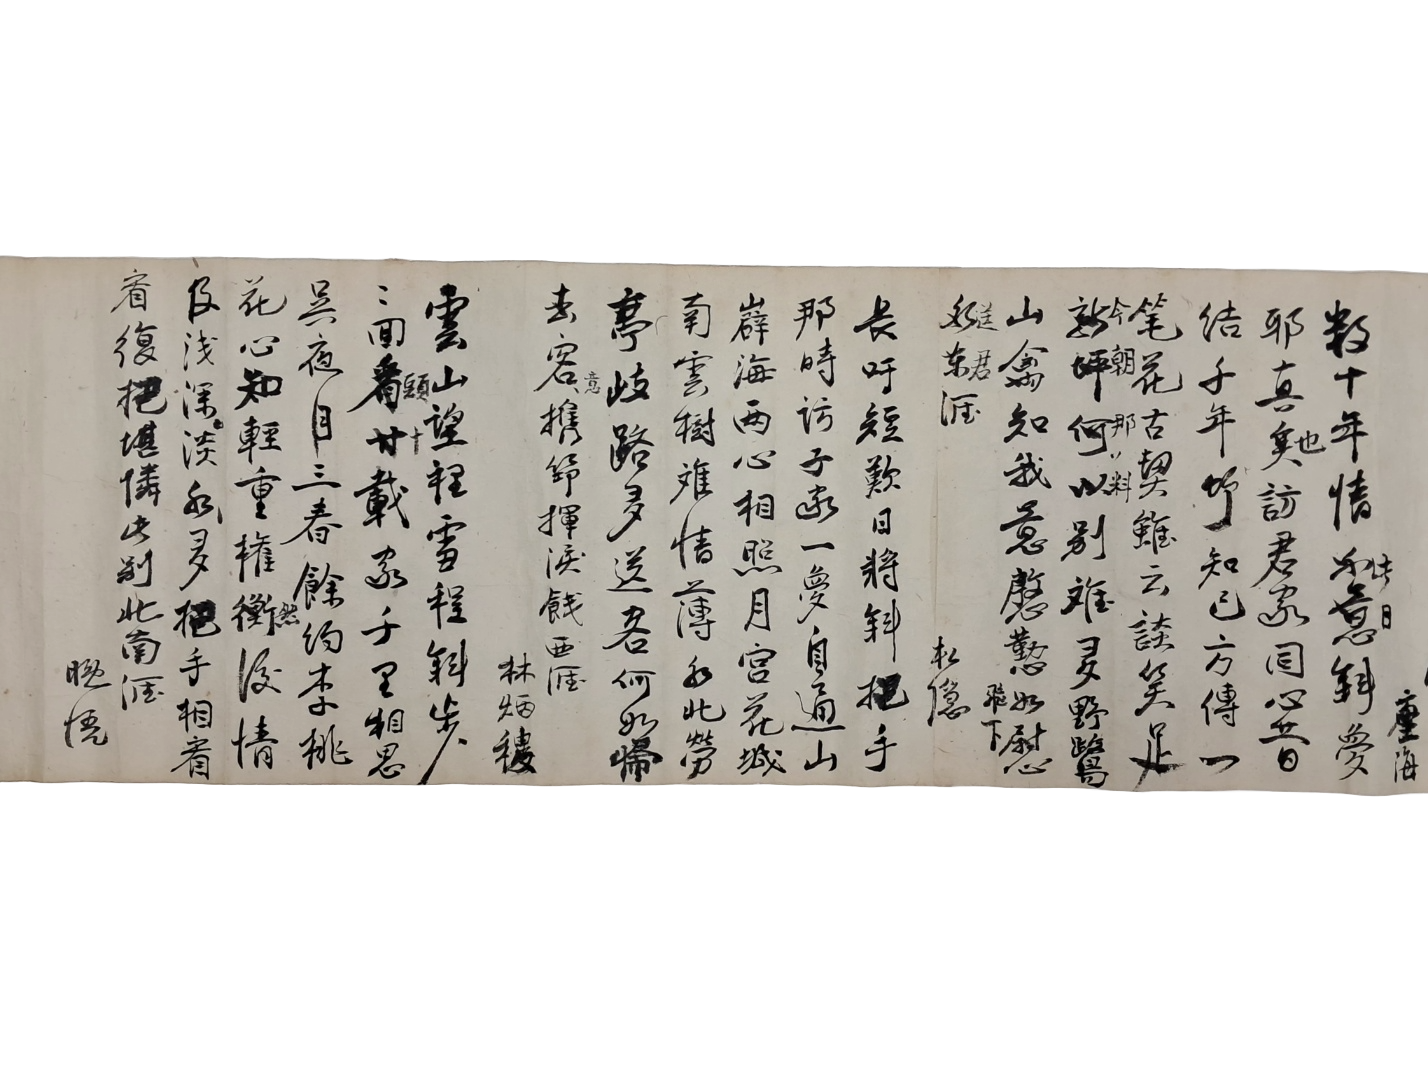 塵海
數十年情不意斜夢
此日
耶真矣訪君家同心昔日
也
結千年竹知己方傳一
笔花古契雖云談笑足
今朝那料
新坪何以别难多野鶯
山禽知我意慇懃如慰心
腹下
送君
水东涯
松隱
長吁短歎日將斜把手
那時訪子家一夢自通山
嶭海两心相照月宮花城
南雲樹难情薄水北勞
亭歧路多送君何如歸
去客携節揮淚餞西涯
意
林炳稷
雲山望裡雪程斜步
〻回看廿載家千里相思
頭十
吴夜月三春餘約李桃
花心知輕重權衡後情
然
及浅深淡水多把手相看
看復把堪憐此别北南涯
晚悟